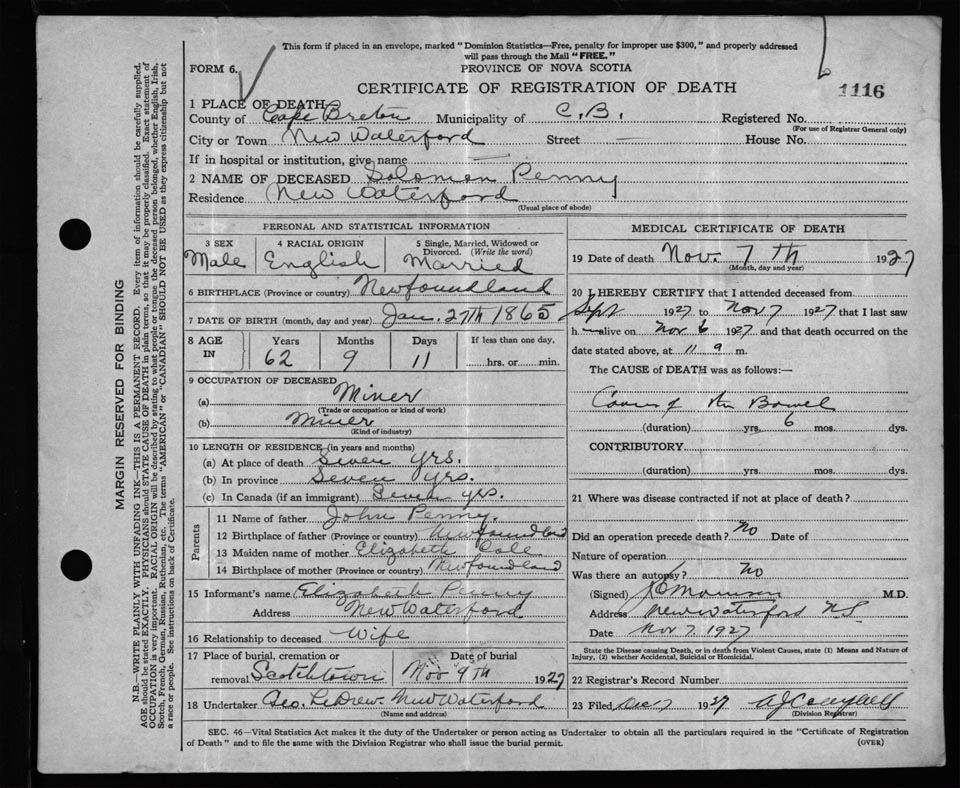 This form if placed in an envelope, marked "Dominion Statistics—Free, penalty for improper use $300," and properly addressed
will pass through the Mail "FREE."
FORM 6.
PROVINCE OF NOVA SCOTIA
CERTIFICATE OF REGISTRATION OF DEATH
1116
1 PLACE OF DEATH
County of Cape Breton Municipality of C. B. Registered No.
(For use of Registrar General only)
City or Town New Waterford Street — House No.
If in hospital or institution, give name —
2 NAME OF DECEASED Solomon Penny
Residence New Waterford
(Usual place of abode)
PERSONAL AND STATISTICAL INFORMATION
3 SEX 4 RACIAL ORIGIN 5 Single, Married, Widowed or Divorced. (Write the word)
Male English Married
6 BIRTHPLACE (Province or country) Newfoundland
7 DATE OF BIRTH (month, day and year) Jan. 27th 1865
8 AGE IN Years Months Days If less than one day,
62 9 11 hrs. or min.
9 OCCUPATION OF DECEASED
(a) Miner
(Trade or occupation or kind of work)
(b) Miner
(Kind of industry)
10 LENGTH OF RESIDENCE (in years and months)
(a) At place of death Seven yrs.
(b) In province Seven yrs.
(c) In Canada (if an immigrant) Seven yrs.
Parents
11 Name of father John Penny.
12 Birthplace of father (Province or country) Newfoundland
13 Maiden name of mother Elizabeth Cole
14 Birthplace of mother (Province or country) Newfoundland
15 Informant's name Elizabeth Penny
Address New Waterford
16 Relationship to deceased Wife
17 Place of burial, cremation or removal Scotchtown Date of burial Nov 9th 1927
18 Undertaker Geo. LeDrew. New Waterford
(Name and address)
MEDICAL CERTIFICATE OF DEATH
19 Date of death Nov. 7th 1927
(Month, day and year)
20 I HEREBY CERTIFY that I attended deceased from
Sept 1927 to Nov 7 1927 that I last saw
h— alive on Nov 6 1927 and that death occurred on the
date stated above, at 11 9 m.
The CAUSE of DEATH was as follows:—
of the Bowel
(duration) yrs. 6 mos. dys.
CONTRIBUTORY.
(duration) yrs. mos. dys.
21 Where was disease contracted if not at place of death?
Did an operation precede death? No Date of
Nature of operation
Was there an autopsy? No
(Signed) Morrison M.D.
Address New Waterford N.S
Date Nov 7. 1927
State the Disease causing Death, or in death from Violent Causes, state (1) Means and Nature of
Injury, (2) whether Accidental, Suicidal or Homicidal.
22 Registrar's Record Number
23 Filed Dec 7 1927 A J Campbell
(Division Registrar)
SEC. 46—Vital Statistics Act makes it the duty of the Undertaker or person acting as Undertaker to obtain all the particulars required in the "Certificate of Registration
of Death" and to file the same with the Division Registrar who shall issue the burial permit.
(OVER)
MARGIN RESERVED FOR BINDING
N.B.—WRITE PLAINLY WITH UNFADING INK—THIS IS A PERMANENT RECORD. Every item of information should be carefully supplied.
AGE should be stated EXACTLY. PHYSICIANS should STATE CAUSE OF DEATH in plain terms, so that it may be properly classified. Exact statement of
OCCUPATION is very important. RACIAL ORIGIN will be described by stating to what people or tongue the deceased person belonged, whether English, Irish,
Scotch, French, German, Russian, Ruthenian, etc. The terms "AMERICAN" or "CANADIAN" SHOULD NOT BE USED as they express citizenship but not
a race or people. See instructions on back of Certificate.